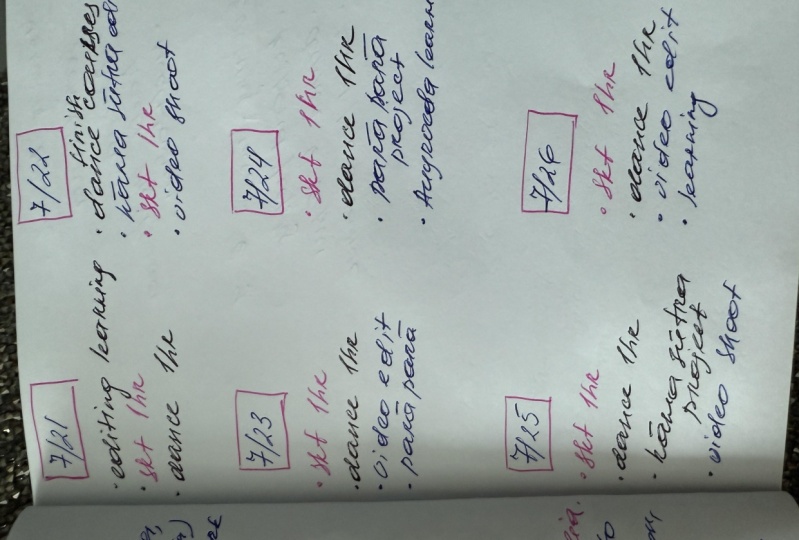 7/21
• editing learning
• skt 1hr
• dance 1hr
7/22
finish
• dance courses
• kāma sūtra edi
• skt 1hr
• video shoot
7/23
• skt 1hr
• dance 1hr
• video edit
• parā parā
7/24
• skt 1hr
• dance 1hr
• parā parā
project
• Auyrveda learn
7/25
• skt 1hr
• dance 1hr
• kāma sūtra
project
• video shoot
7/26
• skt 1hr
• dance 1hr
• video edit
• learning